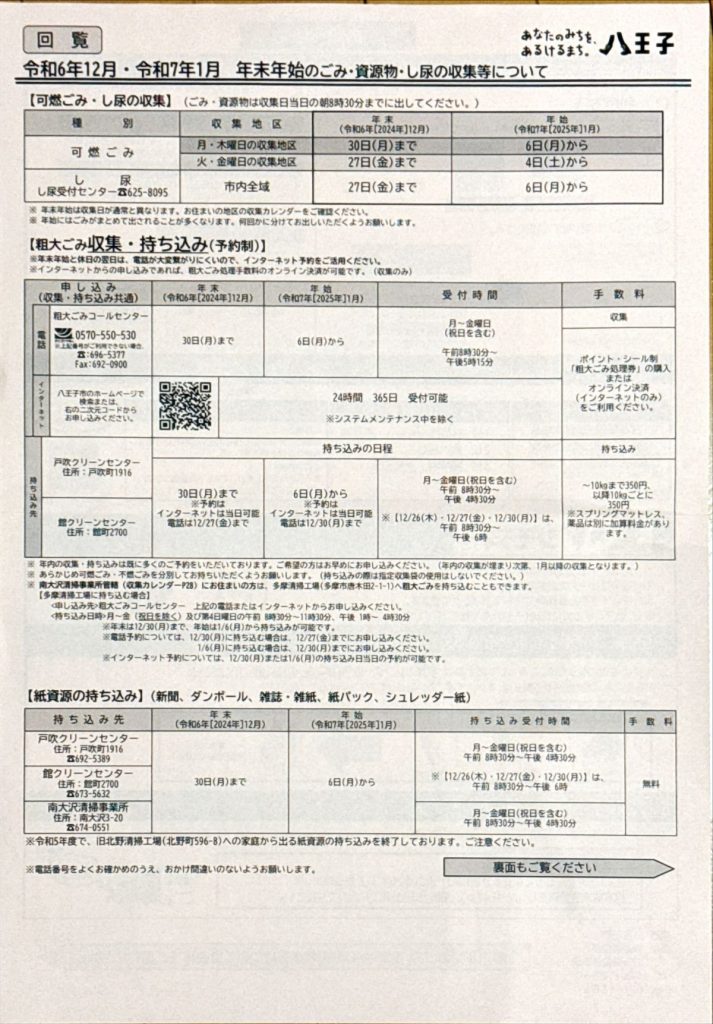 回覧
あなたのみちを、
あるけるまち。八王子
令和6年12月・令和7年1月 年末年始のごみ・資源物・し尿の収集等について
【可燃ごみ・し尿の収集】（ごみ・資源物は収集日当日の朝8時30分までに出してください。）
種別 収集地区 年末 年始
(令和6年[2024年]12月) (令和7年[2025年]1月)
可燃ごみ 月・木曜日の収集地区 30日(月)まで 6日(月)から
火・金曜日の収集地区 27日(金)まで 4日(土)から
し尿
し尿受付センター☎625-8095 市内全域 27日(金)まで 6日(月)から
※ 年末年始は収集日が通常と異なります。お住まいの地区の収集カレンダーをご確認ください。
※ 年始にはごみがまとめて出されることが多くなります。何回かに分けてお出しいただくようお願いします。
【粗大ごみ収集・持ち込み(予約制)】
※年末年始と休日の翌日は、電話が大変繋がりにくいので、インターネット予約をご活用ください。
※インターネットからの申し込みであれば、粗大ごみ処理手数料のオンライン決済が可能です。（収集のみ）
申し込み
(収集・持ち込み共通) 年末
(令和6年[2024年]12月) 年始
(令和7年[2025年]1月) 受付時間 手数料
電話
粗大ごみコールセンター
0570-550-530
※上記番号がご利用できない場合、
☎:696-5377
Fax:692-0900
30日(月)まで 6日(月)から
月～金曜日
(祝日を含む)
午前8時30分～
午後5時15分
収集
ポイント・シール制
「粗大ごみ処理券」の購入
または
オンライン決済
(インターネットのみ)
をご利用ください。
インターネット
八王子市のホームページで
検索または、
右の二次元コードから
お申し込みください。
24時間 365日 受付可能
※システムメンテナンス中を除く
持ち込み先
戸吹クリーンセンター
住所：戸吹町1916
館クリーンセンター
住所：館町2700
持ち込みの日程
30日(月)まで
※予約は
インターネットは当日可能
電話は12/27(金)まで
6日(月)から
※予約は
インターネットは当日可能
電話は12/30(月)まで
月～金曜日(祝日を含む)
午前 8時30分～
午後 4時30分
※【12/26(木)・12/27(金)・12/30(月)】は、
午前 8時30分～
午後 6時
持ち込み
～10kgまで350円、
以降10kgごとに
350円
※スプリングマットレス、
薬品は別に加算料金があり
ます。
※ 年内の収集・持ち込みは既に多くのご予約をいただいております。ご希望の方はお早めにお申し込みください。（年内の収集が埋まり次第、1月以降の収集となります。）
※ あらかじめ可燃ごみ・不燃ごみを分別してお持ちいただくようお願いします。（持ち込みの際は指定収集袋の使用はしないでください。）
※ 南大沢清掃事業所管轄（収集カレンダーP28）にお住まいの方は、多摩清掃工場(多摩市唐木田2-1-1)へ粗大ごみを持ち込むこともできます。
【多摩清掃工場に持ち込む場合】
<申し込み先>粗大ごみコールセンター 上記の電話またはインターネットからお申し込みください。
<持ち込み日時>月～金（祝日を除く）及び第4日曜日の午前 8時30分～11時30分、午後 1時～ 4時30分
※年末は12/30(月)まで、年始は1/6(月)から持ち込みが可能です。
※電話予約については、12/30(月)に持ち込む場合は、12/27(金)までにお申し込みください。
1/6(月)に持ち込む場合は、12/30(月)までにお申し込みください。
※インターネット予約については、12/30(月)または1/6(月)の持ち込み日当日の予約が可能です。
【紙資源の持ち込み】（新聞、ダンボール、雑誌・雑紙、紙パック、シュレッダー紙）
持ち込み先 年末
(令和6年[2024年]12月) 年始
(令和7年[2025年]1月) 持ち込み受付時間 手数料
戸吹クリーンセンター
住所：戸吹町1916
☎692-5389
館クリーンセンター
住所：館町2700
☎673-5632
南大沢清掃事業所
住所：南大沢3-20
☎674-0551
30日(月)まで 6日(月)から
月～金曜日(祝日を含む)
午前 8時30分～午後 4時30分
※【12/26(木)・12/27(金)・12/30(月)】は、
午前 8時30分～午後 6時
月～金曜日(祝日を含む)
午前 8時30分～午後 4時30分
無料
※令和5年度で、旧北野清掃工場(北野町596-8)への家庭から出る紙資源の持ち込みを終了しております。ご注意ください。
※電話番号をよくお確かめのうえ、おかけ間違いのないようお願いします。
裏面もご覧ください